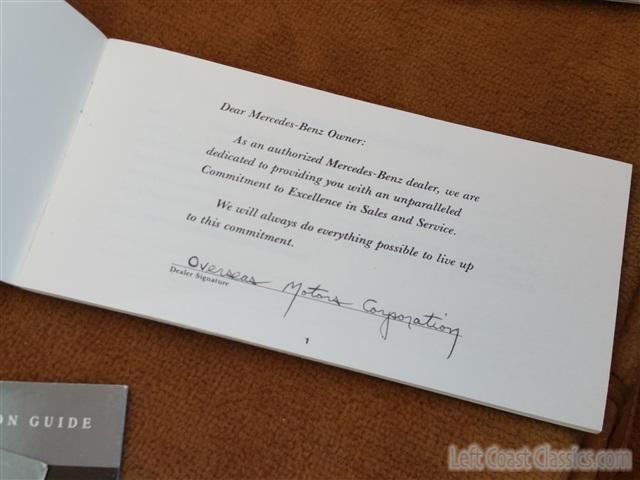 Dear Mercedes-Benz Owner:
As an authorized Mercedes-Benz dealer, we are
dedicated to providing you with an unparalleled
Commitment to Excellence in Sales and Service.
We will always do everything possible to live up
to this commitment.
Overseas Motors Corporation
Dealer Signature
1
ON GUIDE
Left Coast Classics.com